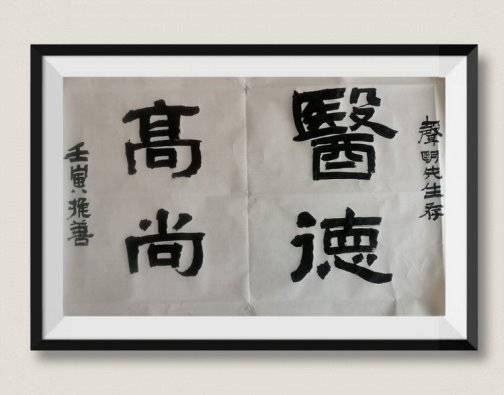 聲明先生存
醫德
高尚
壬寅振善